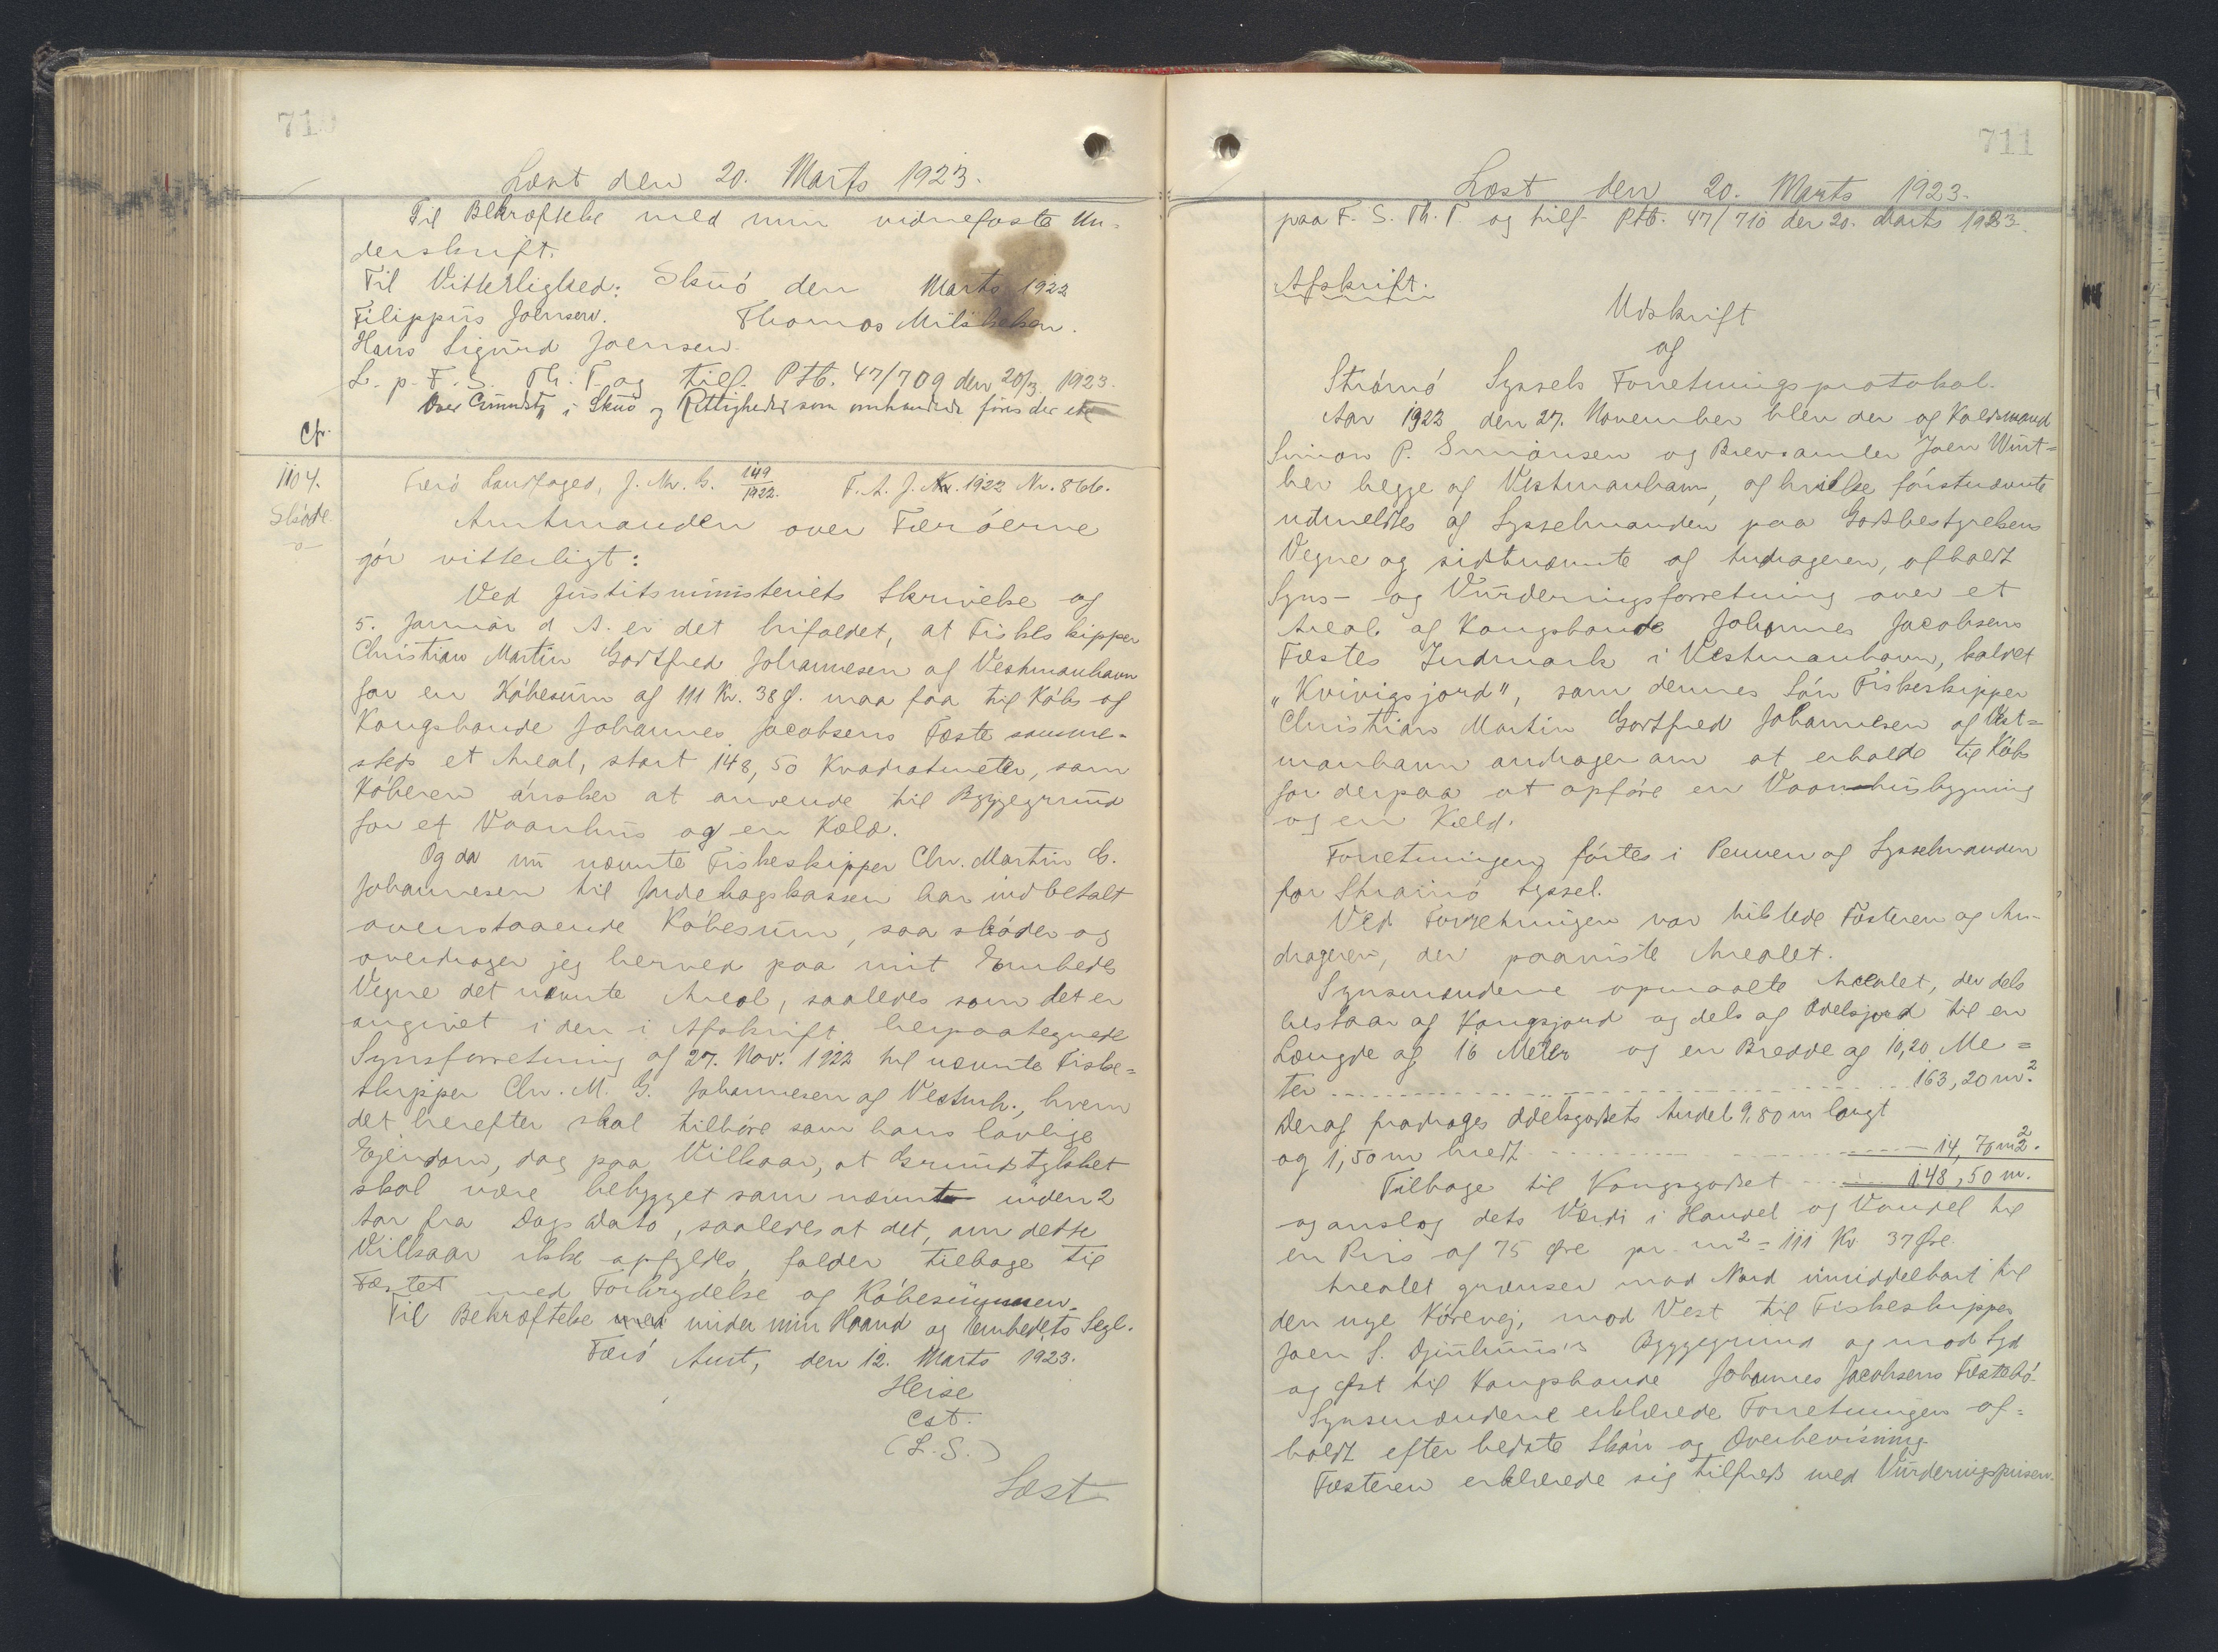 710
Læst den 20. Marts 1923.
Til Bekræftelse med min vidnefaste Un-
derskrift.
Til Vitterlighed: Skuó den Marts 1922
Filippus Joensen. Thomas
Hans Sigurd Joensen
L. p. F. S. Th. T. og tilf. Ptb. 47/709 den 20/3 1923.
i Skuó og Rettigheder som omhandlede föres der
Cfr.
1104.
Skóde
Færó Landfoged, J. Nr. G. 149/1922. F. A. J. Nr. 1922 Nr. 866.
Amtmanden over Færóerne
gór vitterligt:
Ved Justitsministeriets Skrivelse af
5. Januar d A. er det bifaldet, at Fiskeskipper
Christian Martin Gotfred Johannesen af Vestmanhavn
for en Kóbesum af 111 Kr. 38 Ø. maa faa til Kóbs af
Kongsbonde Johannes Jacobsens Fæste samme-
steds et Areal, stort 148,50 Kvadratmeter, som
Kóberen ónsker at anvende til Byggegrund
for et Vaanhus og en Kæld.
Og da nu nævnte Fiskeskipper Chr. Martin G.
Johannesen til Jordebogskassen har indbetalt
ovenstaaende Kóbesum, saa skóder og
overdrager jeg herved paa mit Embeds
Vegne det nævnte Areal, saaledes som det er
angivet i den i Afskrift herpaategnede
Synsforretning af 27. Nov. 1922 til nævnte Fiske=
skipper Chr. M. G. Johannesen af Vestmh., hvem
det herefter skal tilhóre som hans lovlige
Ejendom, dog paa Vilkaar, at Grundstykket
skal være bebygget som nævnt inden 2
Aar fra Dags Dato, saaledes at det, om dette
Vilkaar ikke opfyldes, falder tilbage til
Fæstet med Forbrydelse af Kóbesummen.
Til Bekræftelse under min Haand og Embedets Segl.
Færó Amt, den 12. Marts 1923.
Heise
cst.
(L. S.)
Læst
711
Læst den 20. Marts 1923.
paa F. S. Th. T. og tilf. Ptb. 47/710 den 20. Marts 1923.
Afskrift.
Udskrift
af
Strómó Syssels Forretningsprotokol.
Aar 1922 den 27. November blev der af Koldsmand
Simon P. Simonsen og Brevsamler Joen Wint=
her begge af Vestmanhavn, af hvilke fórstnævnte
udmeldtes af Sysselmanden paa Godsbestyrelsens
Vegne og sidstnævnte af Andrageren, afholdt
Syns- og Vurderingsforretning over et
Areal af Kongsbonde Johannes Jacobsens
Fæstes Indmark i Vestmanhavn, kaldet
"Kvivigsjord", som dennes Són Fiskeskipper
Christian Martin Gotfred Johannesen af Vest=
manhavn andrager om at erholde til Kóbs
for derpaa at opfóre en Vaanhusbygning
og en Kæld.
Forretningen fórtes i Pennen af Sysselmanden
for Strómó Syssel.
Ved Forretningen var tilstede Fæsteren og An-
drageren, der paaviste Arealet.
Synsmændene opmaalte Arealet, der dels
bestaar af Kongsjord og dels af Odelsjord til en
Længde af 16 Meter og en Bredde af 10,20 Me=
ter 163,20 m².
Deraf fradrages Odelsgodsets Andel 9,80 m langt
og 1,50 m bredt 14,70 m².
Tilbage til Kongsgodset 148,50 m².
og anslog dets Værdi i Handel og Vandel til
en Pris af 75 Øre pr. m² = 111 Kr 37 Øre.
Arealet grænser mod Nord umiddelbart til
den nye Kórevej, mod Vest til Fiskeskipper
Joen S. Djurhuus's Byggegrund og mod Syd
og Øst til Kongsbonde Johannes Jacobsens Fæstebó.
Synsmændene erklærede Forretningen af=
holdt efter bedste Skón og Overbevisning.
Fæsteren erklærede sig tilfreds med Vurderingsprisen.